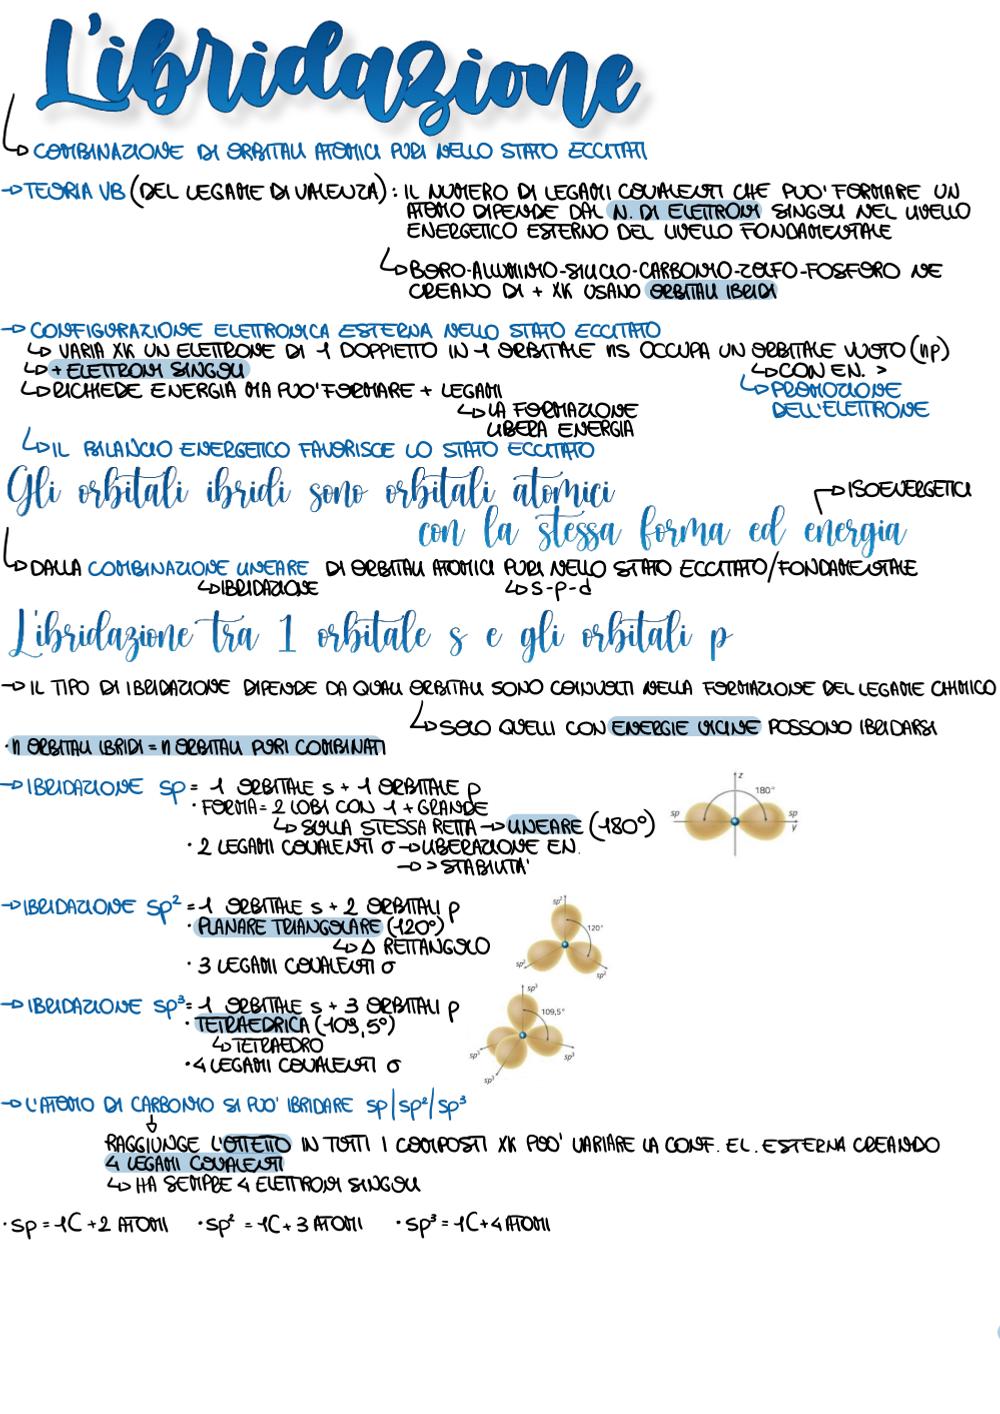 L'ibridazione
↳ COMBINAZIONE DI ORBITALI ATOMICI PURI NELLO STATO ECCITATI
→ TEORIA VB (DEL LEGAME DI VALENZA): IL NUMERO DI LEGAMI COVALENTI CHE PUO' FORMARE UN
ATOMO DIPENDE DAL N. DI ELETTRONI SINGOLI NEL LIVELLO
ENERGETICO ESTERNO DEL LIVELLO FONDAMENTALE
↳ BORO-ALLUMINIO-SILICIO-CARBONIO-ZOLFO-FOSFORO NE
CREANO DI + XK USANO ORBITALI IBRIDI
→ CONFIGURAZIONE ELETTRONICA ESTERNA NELLO STATO ECCITATO
↳ VARIA XK UN ELETTRONE DI 1 DOPPIETTO IN 1 ORBITALE ns OCCUPA UN ORBITALE VUOTO (np)
↳ + ELETTRONI SINGOLI ↳ CON EN. >
↳ RICHIEDE ENERGIA MA PUO' FORMARE + LEGAMI ↳ PROMOZIONE
↳ LA FORMAZIONE DELL'ELETTRONE
LIBERA ENERGIA
↳ IL BILANCIO ENERGETICO FAVORISCE LO STATO ECCITATO
Gli orbitali ibridi sono orbitali atomici → ISOENERGETICI
con la stessa forma ed energia
↳ DALLA COMBINAZIONE LINEARE DI ORBITALI ATOMICI PURI NELLO STATO ECCITATO/FONDAMENTALE
↳ IBRIDAZIONE ↳ s-p-d
L'ibridazione tra 1 orbitale s e gli orbitali p
→ IL TIPO DI IBRIDAZIONE DIPENDE DA QUALI ORBITALI SONO COINVOLTI NELLA FORMAZIONE DEL LEGAME CHIMICO
↳ SOLO QUELLI CON ENERGIE VICINE POSSONO IBRIDARSI
· n ORBITALI IBRIDI = n ORBITALI PURI COMBINATI
→ IBRIDAZIONE sp = 1 ORBITALE s + 1 ORBITALE p
· FORMA = 2 LOBI CON 1 + GRANDE
↳ SULLA STESSA RETTA → LINEARE (180°)
· 2 LEGAMI COVALENTI σ → LIBERAZIONE EN.
→ > STABILITA'
z
180°
sp sp
y
→ IBRIDAZIONE sp² = 1 ORBITALE s + 2 ORBITALI p
· PLANARE TRIANGOLARE (120°)
↳ △ RETTANGOLO
· 3 LEGAMI COVALENTI σ
sp²
120°
sp² sp²
→ IBRIDAZIONE sp³ = 1 ORBITALE s + 3 ORBITALI p
· TETRAEDRICA (109,5°)
↳ TETRAEDRO
· 4 LEGAMI COVALENTI σ
sp³
109,5°
sp³ sp³
sp³
→ L'ATOMO DI CARBONIO SI PUO' IBRIDARE sp|sp²/sp³
↓
RAGGIUNGE L'OTTETTO IN TUTTI I COMPOSTI XK PUO' VARIARE LA CONF. EL. ESTERNA CREANDO
4 LEGAMI COVALENTI
↳ HA SEMPRE 4 ELETTRONI SINGOLI
· sp = 1C + 2 ATOMI · sp² = 1C + 3 ATOMI · sp³ = 1C + 4 ATOMI